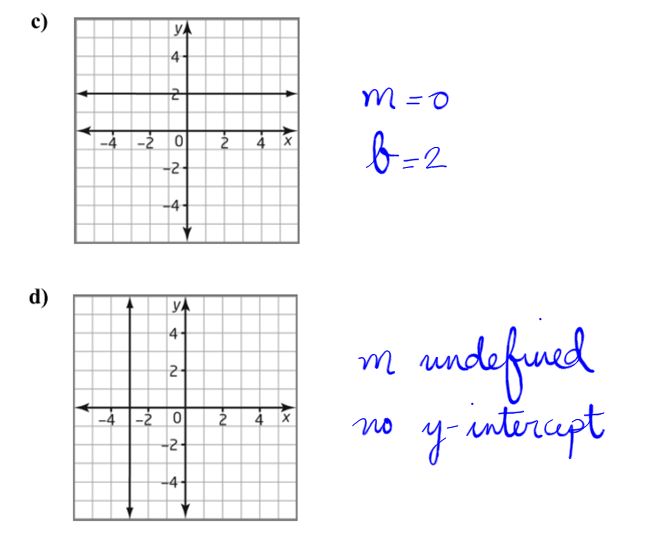 c)
y
4
2
-4 -2 0 2 4 x
-2
-4
m = 0
b = 2
d)
y
4
2
-4 -2 0 2 4 x
-2
-4
m undefined
no y-intercept